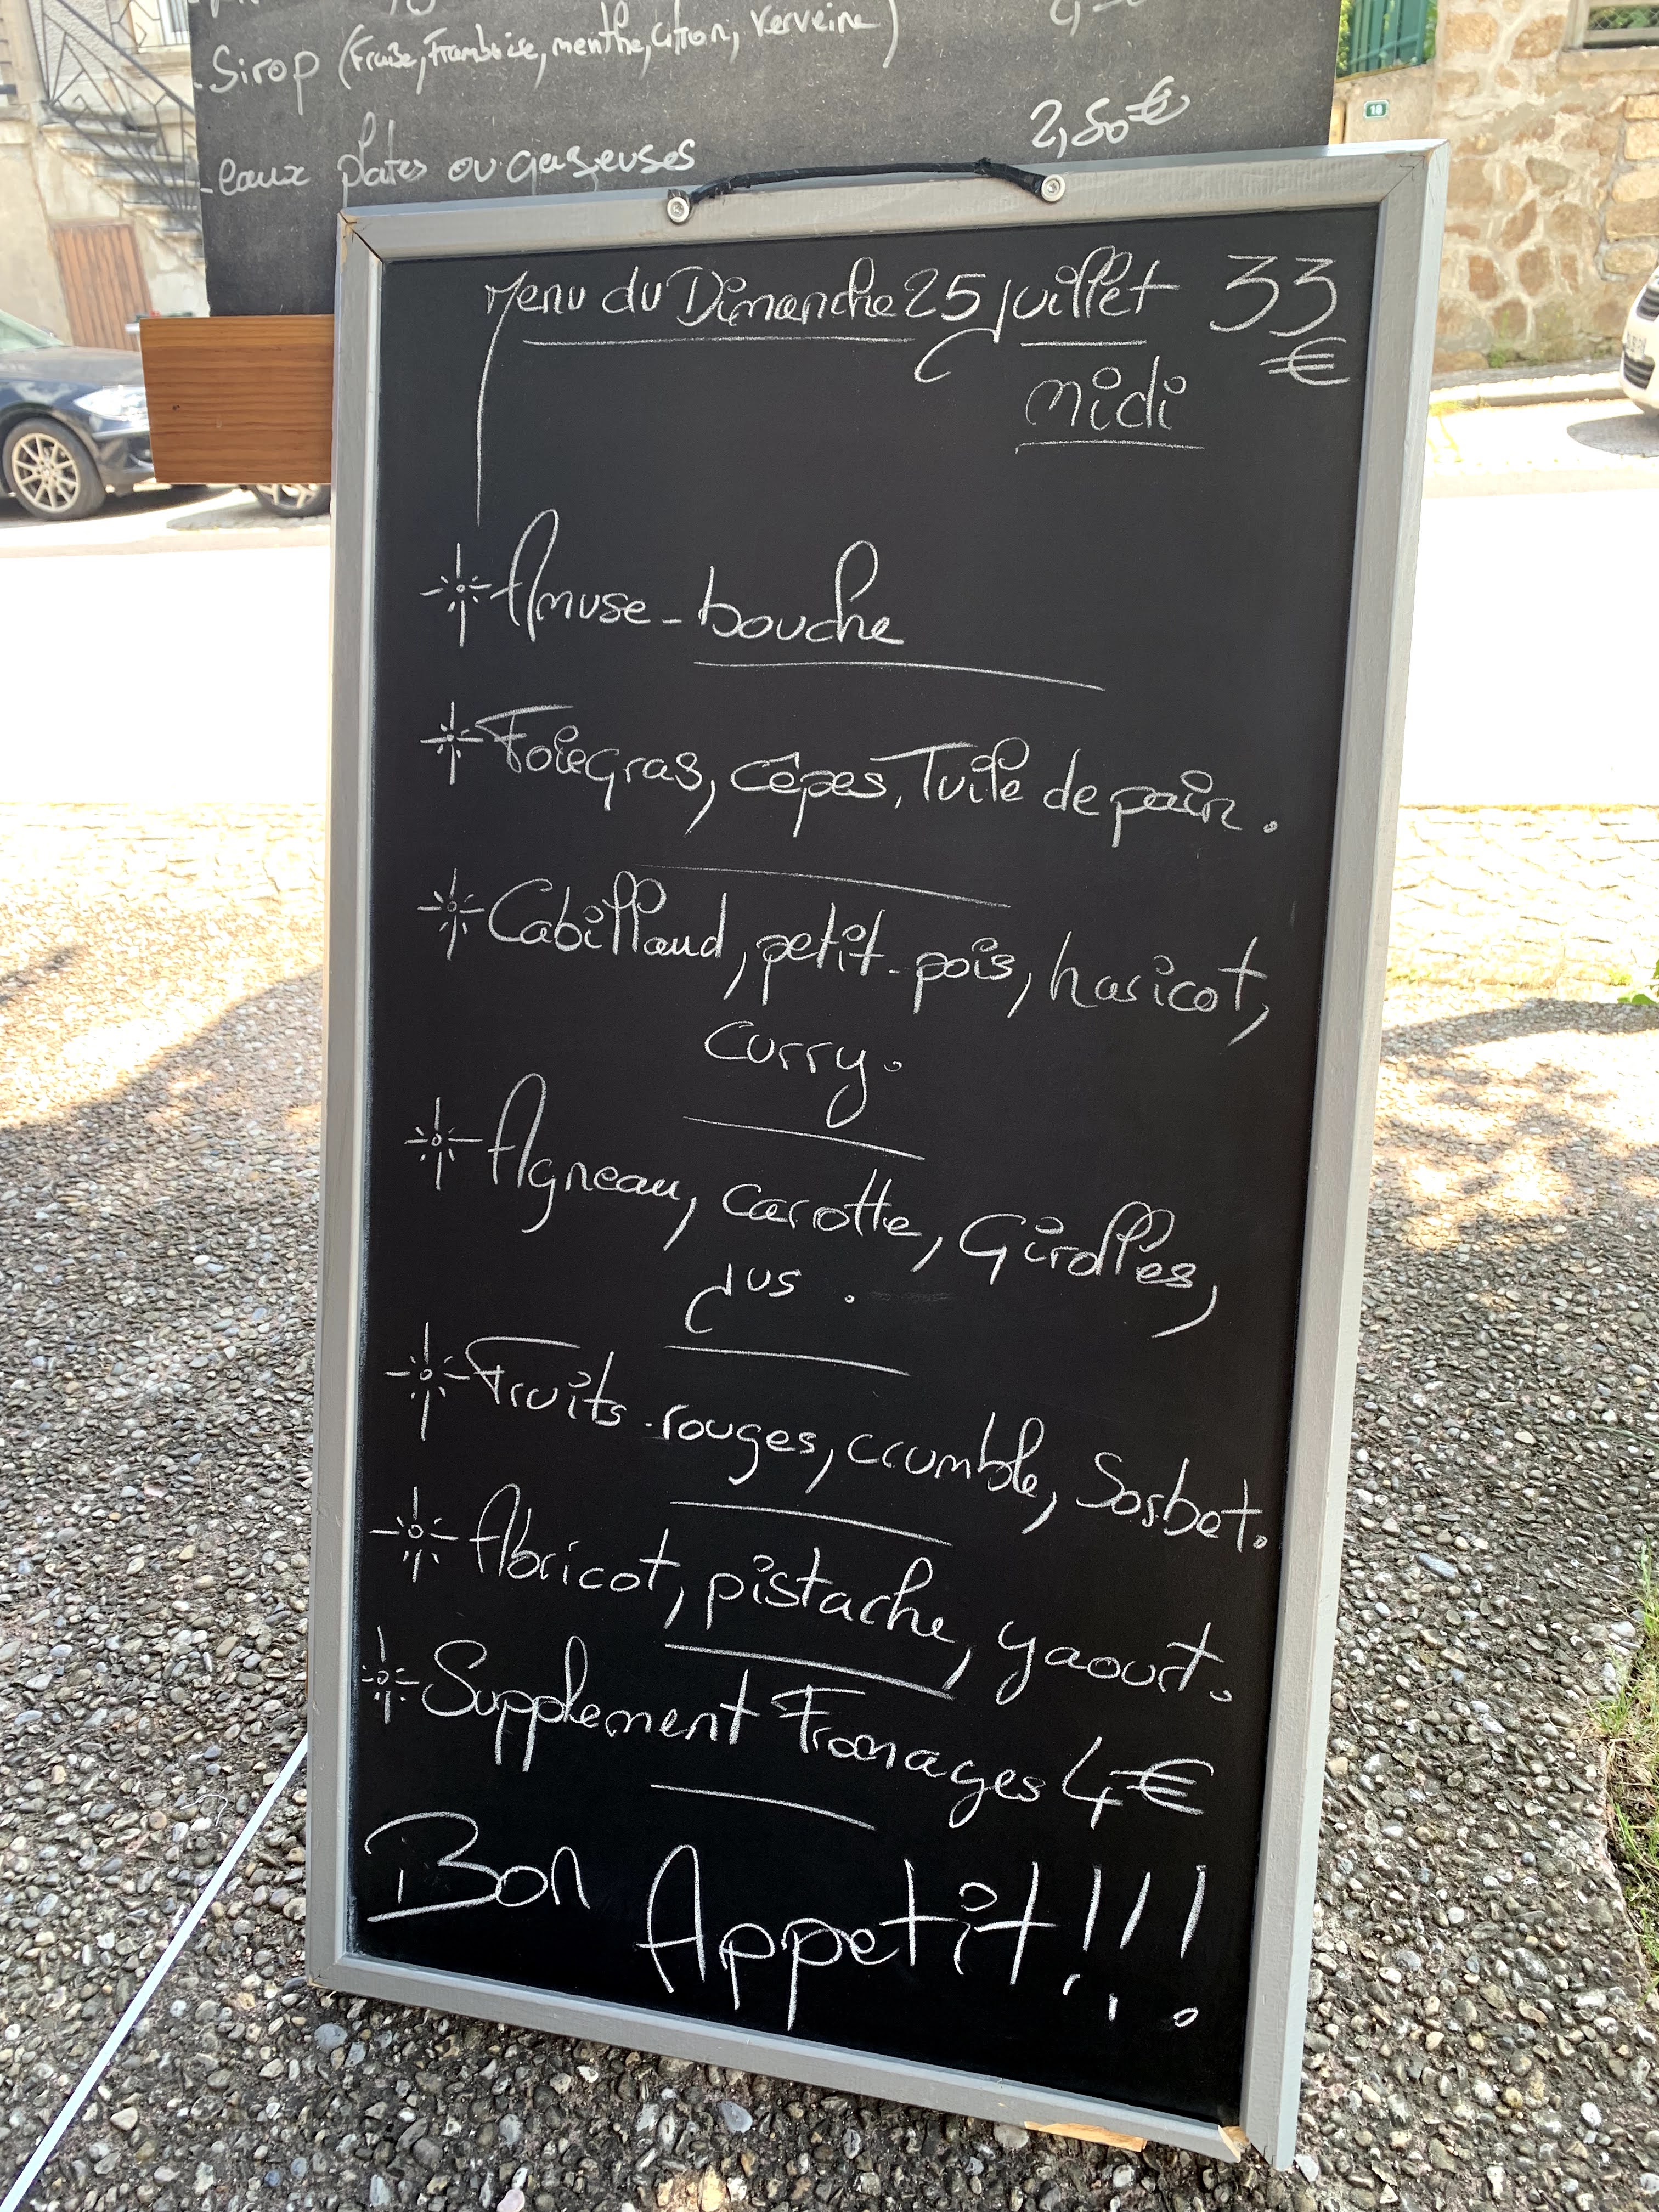 - Sirop (Fraise, Framboise, menthe, Citron, Verveine)
- eaux plates ou gazeuses 2,50€
18
Menu du Dimanche 25 juillet 33
€
midi
Amuse-bouche
Foiegras, cêpes, Tuile de pain.
Cabillaud, petit-pois, haricot,
curry.
Agneau, carotte, Girolles,
jus.
Fruits-rouges, crumble, Sorbet.
Abricot, pistache, yaourt.
Supplement Fromages 4€
Bon
Appetit!!!